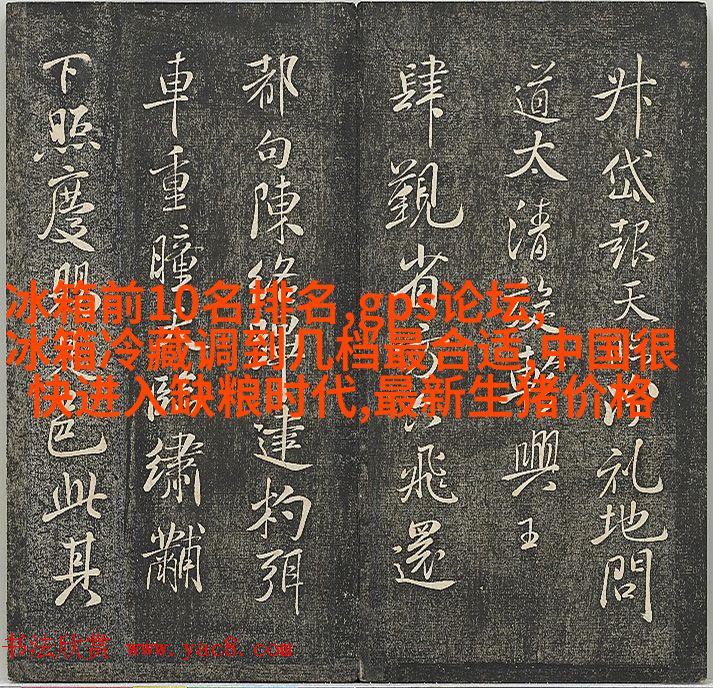 升岱報天礼地問
道太清興王
肆觀省飛還
都句陳建杓弭
車重瞳臨繡黼
下照慶賜邑此其
冰箱前10名排名,gps论坛,
冰箱冷藏调到几档最合适,中国很
快进入缺粮时代,最新生猪价格
书法欣赏 www.yac8.com